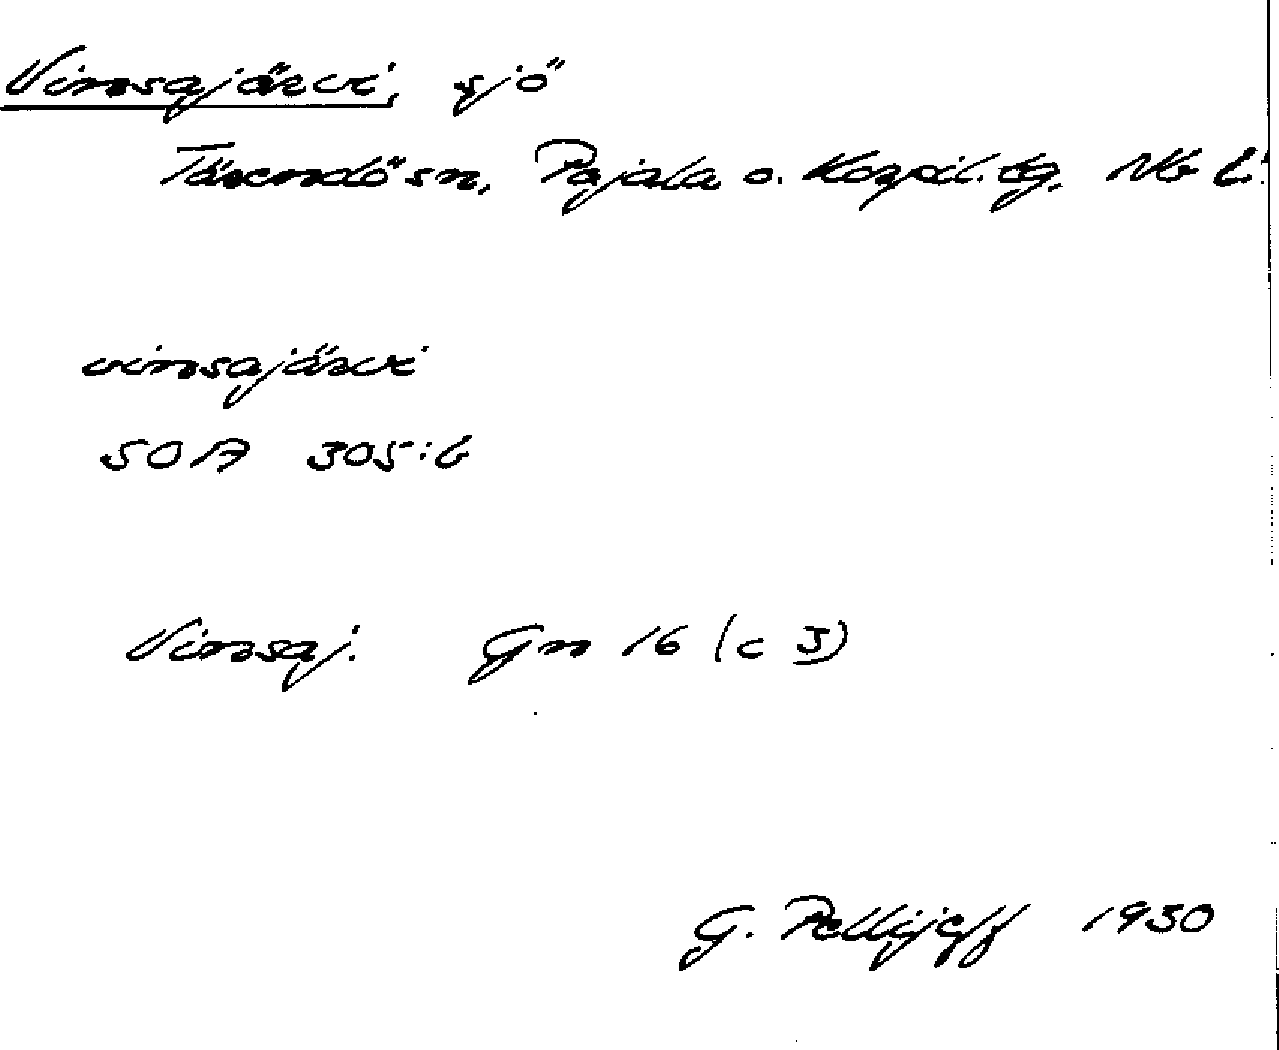 Vinsajärvi, sjö
Tärendö sn, Pajala o. Korpil. tg, Nb l.
vinsajärvi
50 A 305:6
Vinsaj. Gn 16 (c 3)
G. Pellijeff 1950